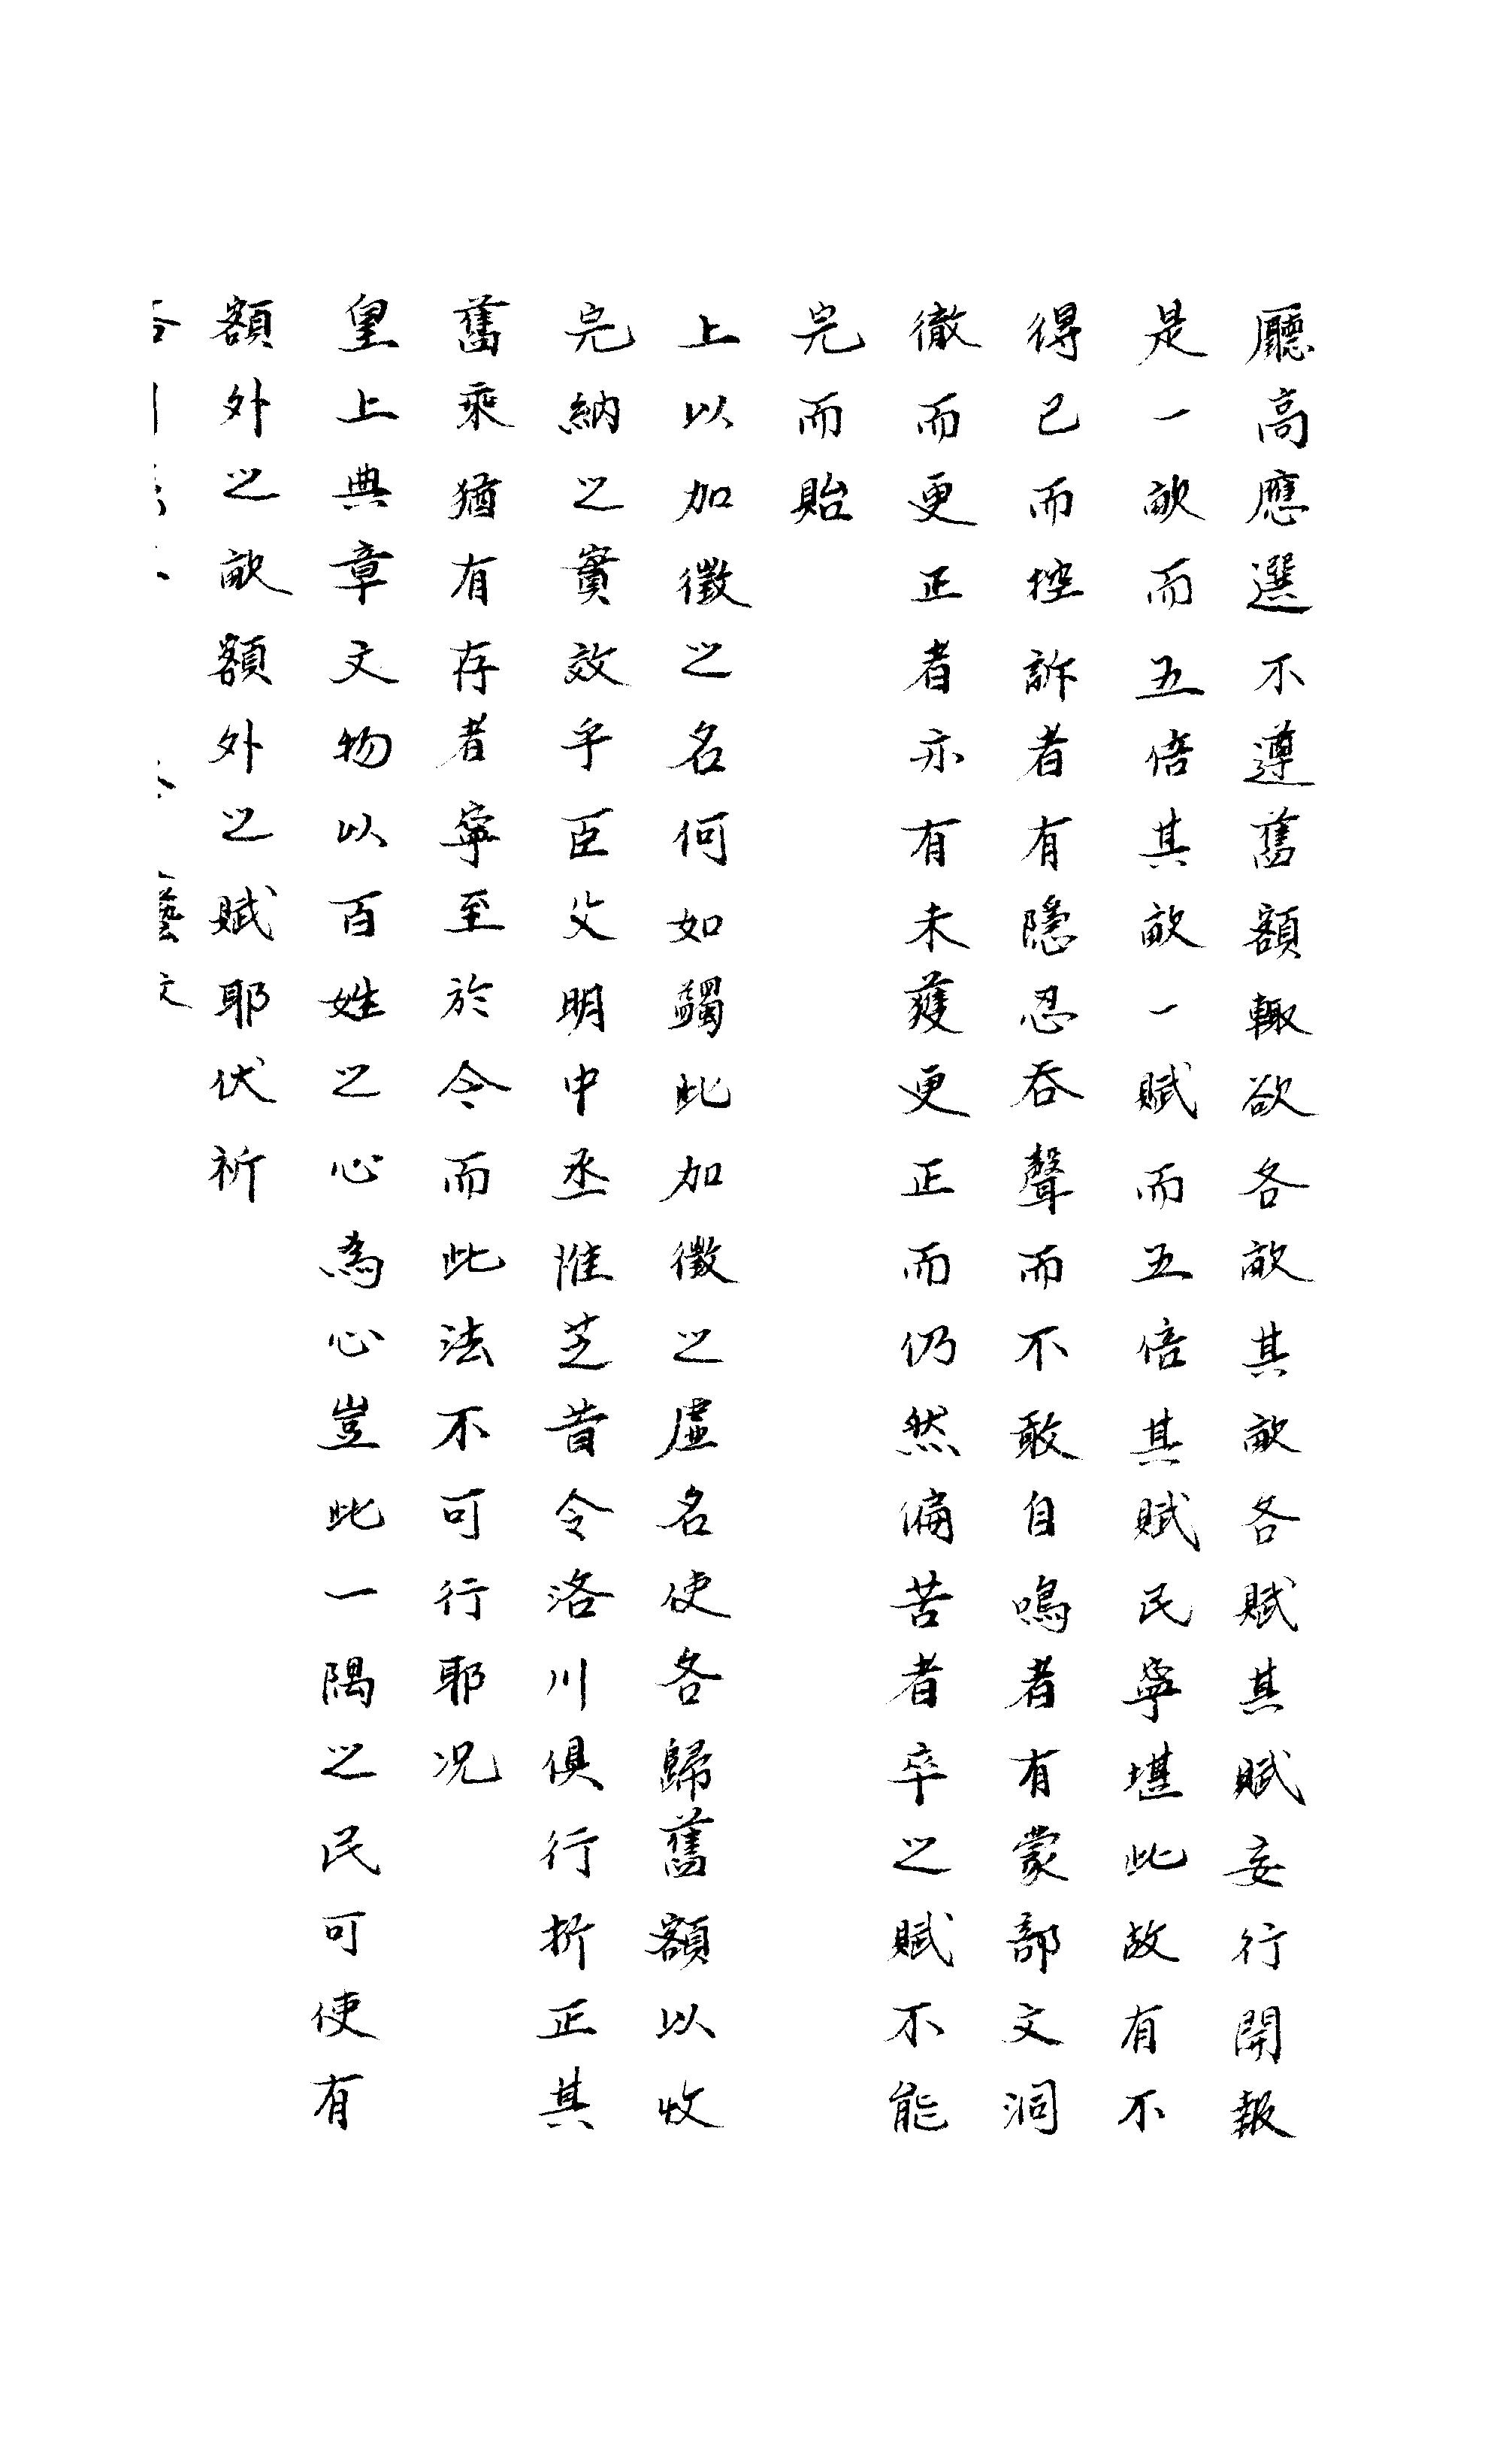 廳高應選不遵舊額輙欲各畝其畝各賦其賦妄行開報
是一畝而五倍其畝一賦而五倍其賦民寧堪此故有不
得已而控訴者有隱忍吞聲而不敢自鳴者有蒙部文洞
徹而更正者亦有未獲更正而仍然偏苦者卒之賦不能
完而貽
上以加徵之名何如蠲此加徵之虛名使各歸舊額以收
完納之實效乎臣父明中丞惟芝昔令洛川俱行折正其
舊乘猶有存者寧至於今而此法不可行耶况
皇上典章文物以百姓之心為心豈此一隅之民可使有
額外之畝額外之賦耶伏祈
藝文